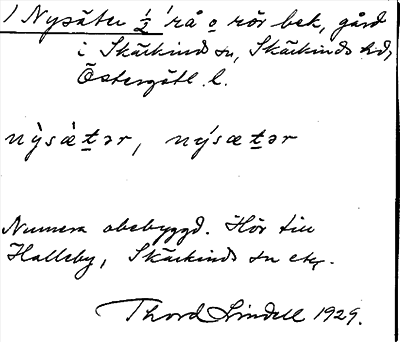 1 Nysäter ½ rå o rör bek, gård
i Skärkinds sn, Skärkinds hd,
Östergötl. l.
nỳsæ̀tər, nýsætər
Numera obebyggd. Hör till
Halleby, Skärkinds sn etc.
Thord Lindell 1929.